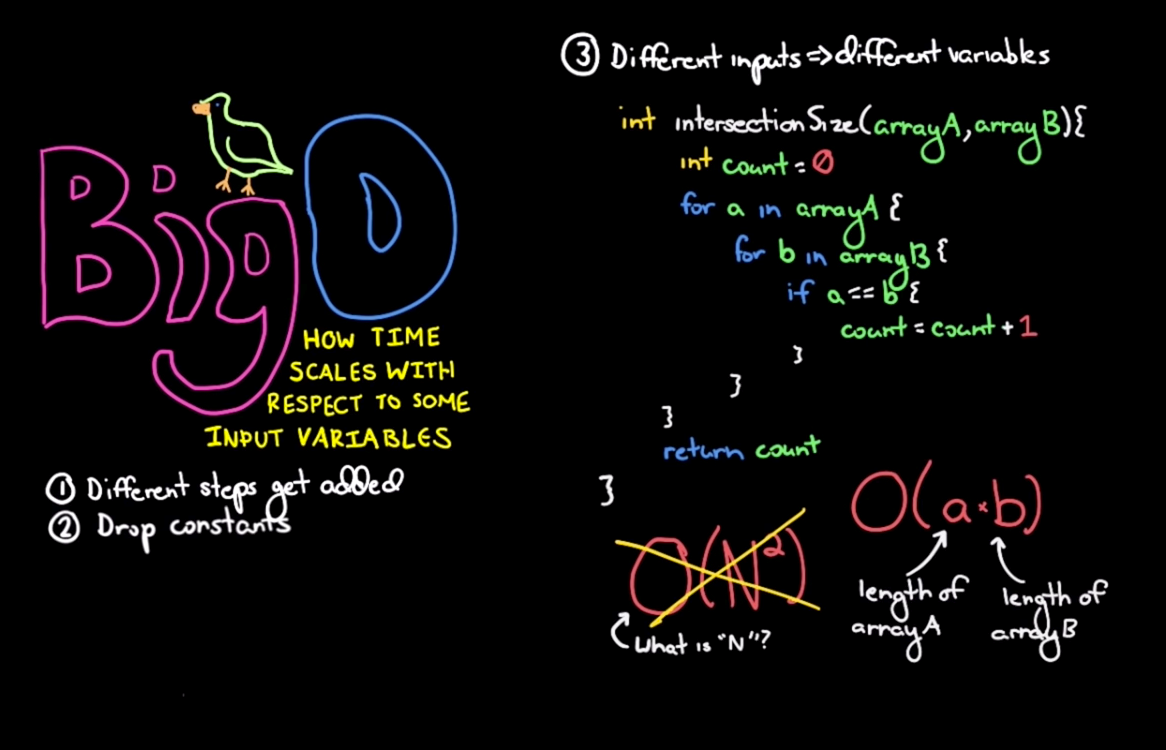 Big O
HOW TIME
SCALES WITH
RESPECT TO SOME
INPUT VARIABLES
① Different steps get added
② Drop constants
③ Different inputs => different variables
int intersectionSize(arrayA, arrayB){
int count = 0
for a in arrayA {
for b in arrayB {
if a == b {
count = count + 1
}
}
}
return count
}
O(N²)
What is "N"?
O(a*b)
length of
arrayA
length of
arrayB